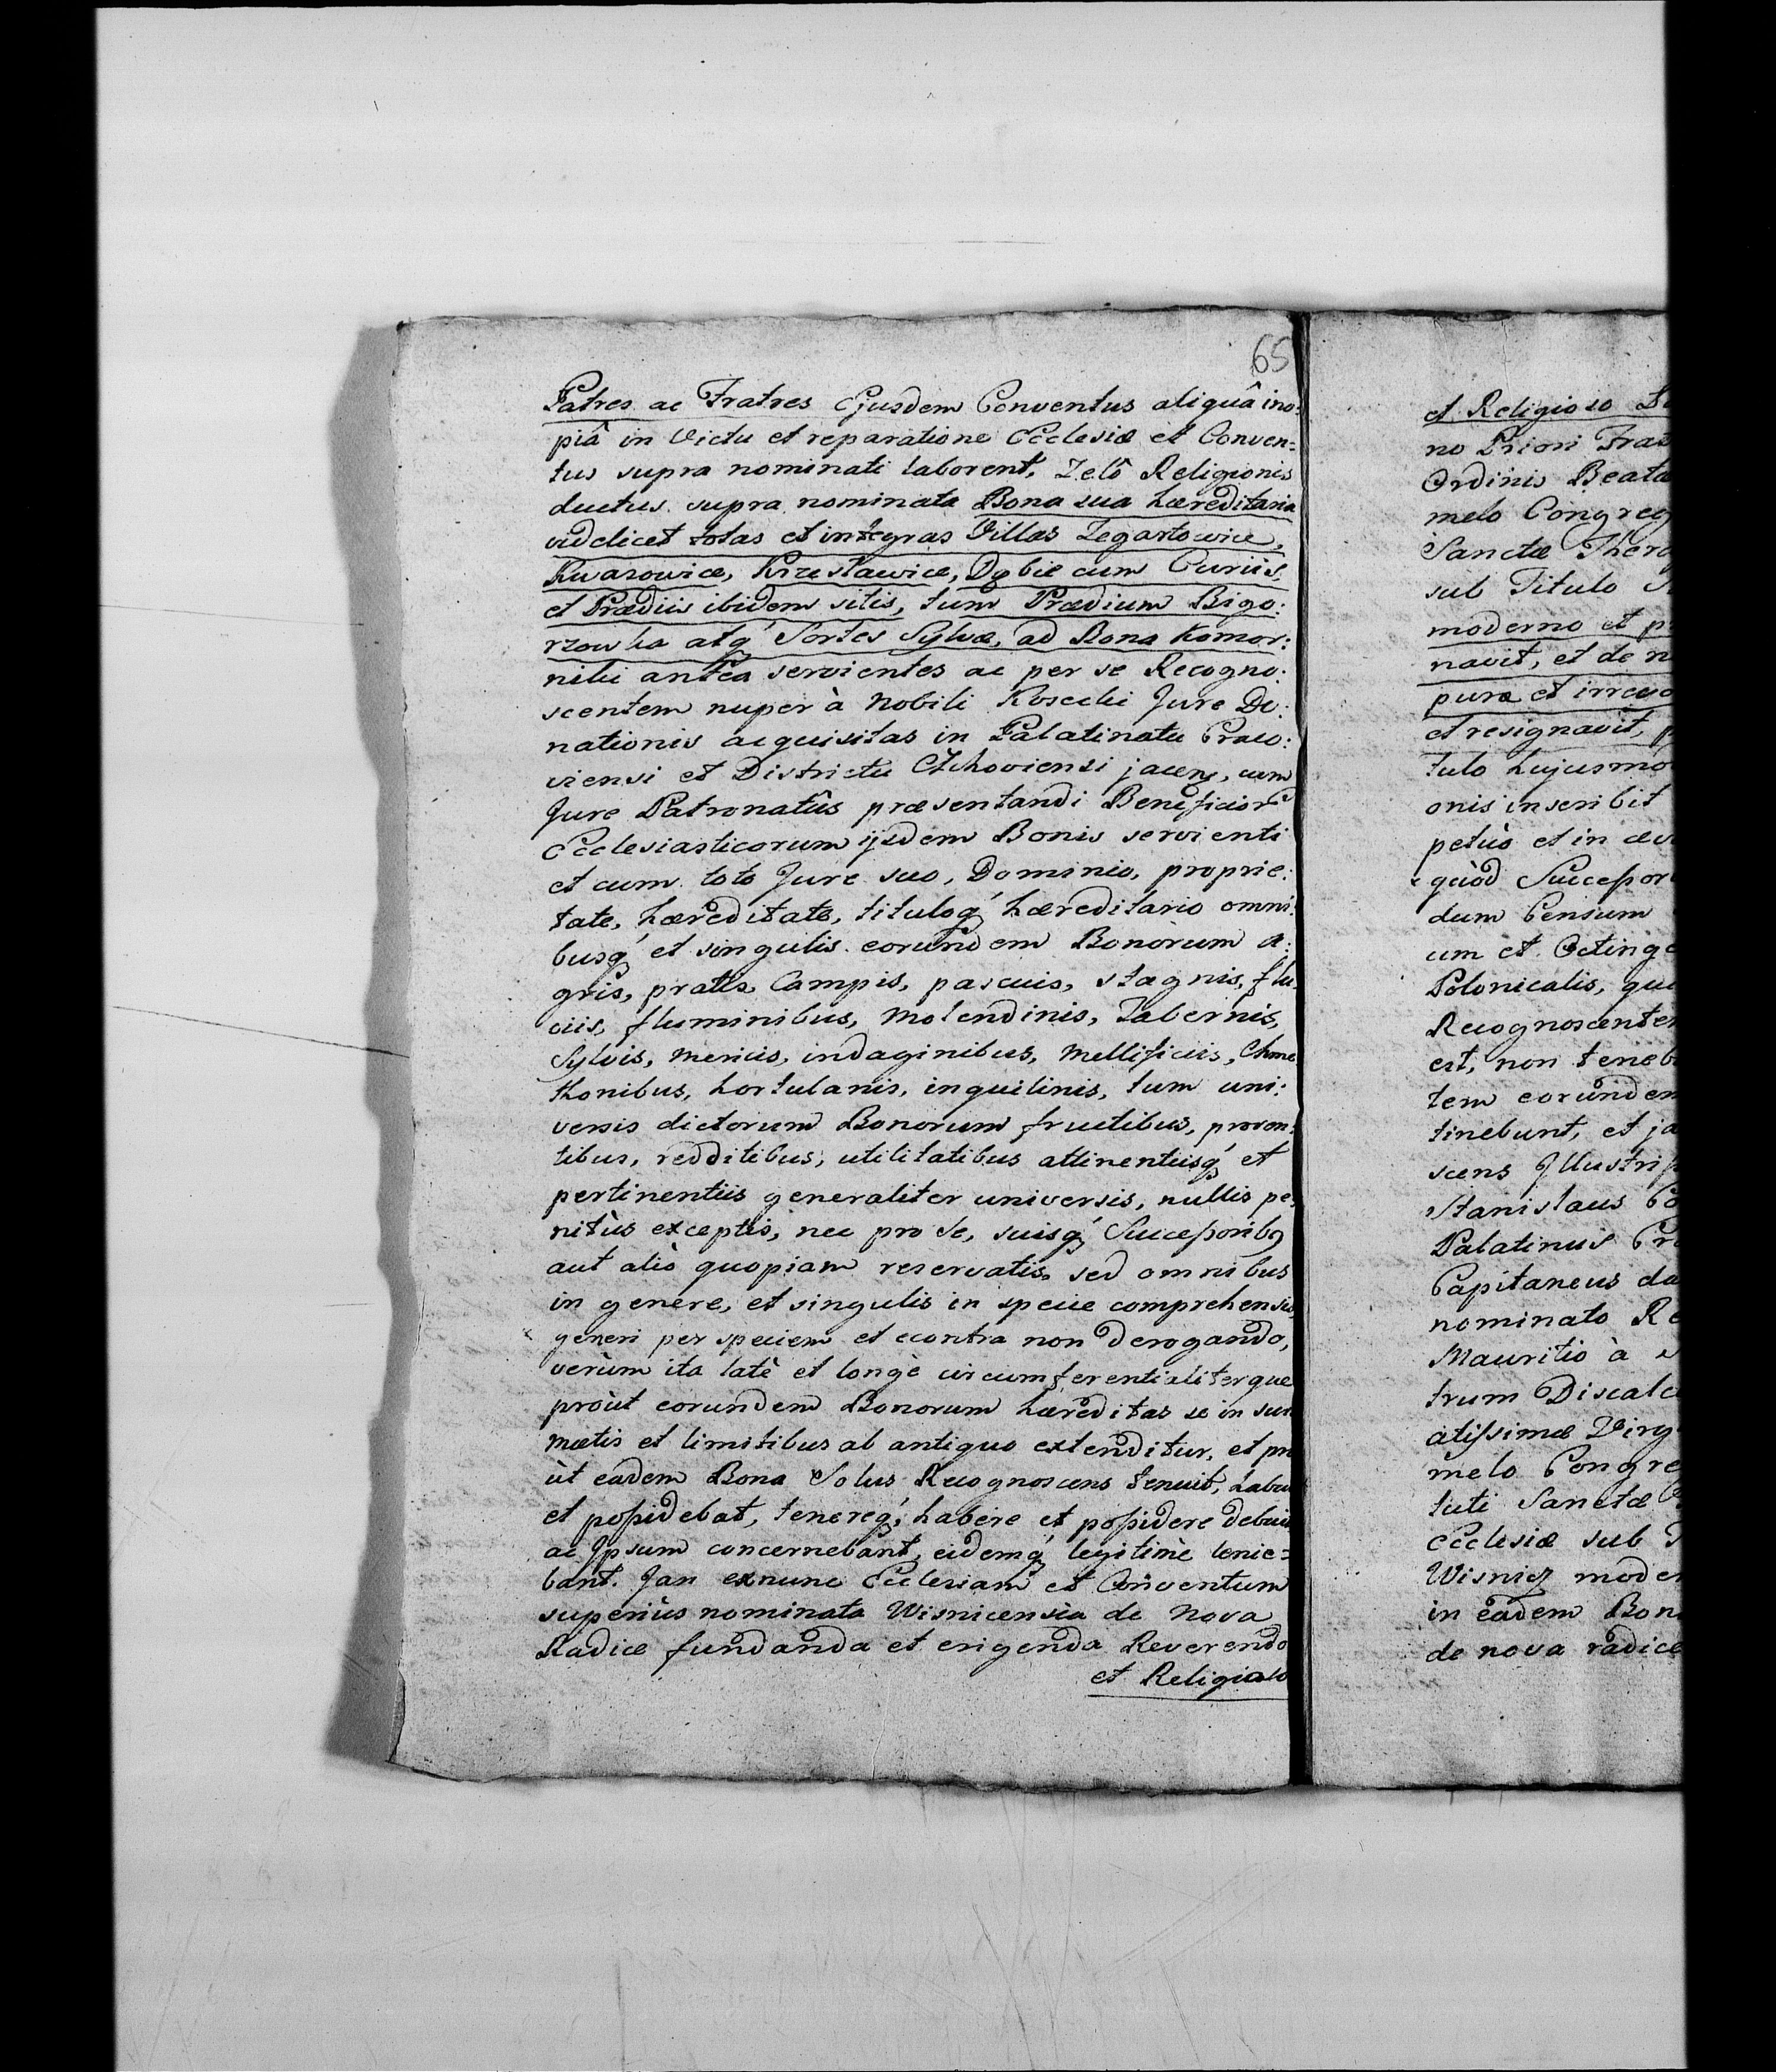 65
Patres ac Fratres Ejusdem Conventus aliquâ ino:
piâ in Victu et reparatione Ecclesiæ et Conven=
tus supra nominati laborent, Zelô Religionis
ductus supra nominata Bona sua hæreditaria
videlicet totas et integras Villas Zegartowice,
Kwasowice, Krzesławice, Dąbie cum Curiis,
et Prædiis ibidem sitis, tum Prædium Bigo:
rzowka atq́ Sortes Sylvæ, ad Bona Komor:
niki antea servientes ac per se Recogno:
scentem nuper à Nobili Koscelii Jure Do:
nationis acquisitas in Palatinatu Craco:
viensi et Districtu Czchoviensi jacen, cum
Jure Patronatûs præsentandi Beneficior
Ecclesiasticorum ijsdem Bonis servienti
et cum toto Jure suo, Dominio, proprie:
tate, hæreditate, tituloq́ hæreditario omni:
busq́ et singulis eorundem Bonorum a:
gris, pratis, Campis, pascuis, stagnis, flu
viis, fluminibus, Molendinis, Tabernis,
Sylvis, Mericis, indaginibus, Mellificiis, Chme
thonibus, hortulanis, inquilinis, tum uni:
versis dictorum Bonorum fructibus, proven:
tibus, redditibus, utilitatibus attinentiisq́ et
pertinentiis generaliter universis, nullis pe:
nitùs exceptis, nec pro se, suisq́ Successoribq
aut aliò quopiam reservatis, sed omnibus
in genere, et singulis in specie comprehensis,
generi per speciem et econtra non derogando,
verùm ita latè et longè circumferentialiterque
proùt eorundem Bonorum hæreditas se in suis
mætis et limitibus ab antiquo extenditur, et pro
ùt eadem Bona Solus Recognoscens tenuit, habu
et possidebat, tenereq́, habere et possidere debuit
ac Ipsum concernebant, eidemq́ legitimè
bant. Jan exnunc Ecclesiam et Conventum
superiùs nominata Wisnicensia de Nova
Radice fundanda et erigenda Reverendo
et Religioso
et Religioso
no Priori Frat
Ordinis Beata
melo Congreg
Sanctæ There
sub Titulo
moderno et p
navit, et de n
pure et irrevo
et resignavit, p
tulo hujusmo
onis inscribit
petùo et in æv
quòd Successor
dum Censum
um et Octinge
Polonicalis, qu
Recognoscente
est, non teneb
tem eorunden
tinebunt, et ja
scens Illustriss
Stanislaus Co
Palatinus Cr
Capitaneus da
nominato Re
Mauritio à
trum Discalc
atissimæ Virg
melo Congre
tuti Sanctæ
Ecclesiæ sub
Wisnicz moder
in eadem Bon
de nova radice